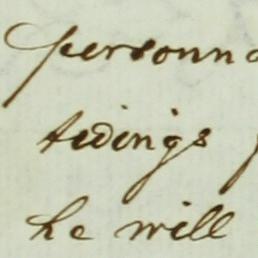 personna
tidings
he will